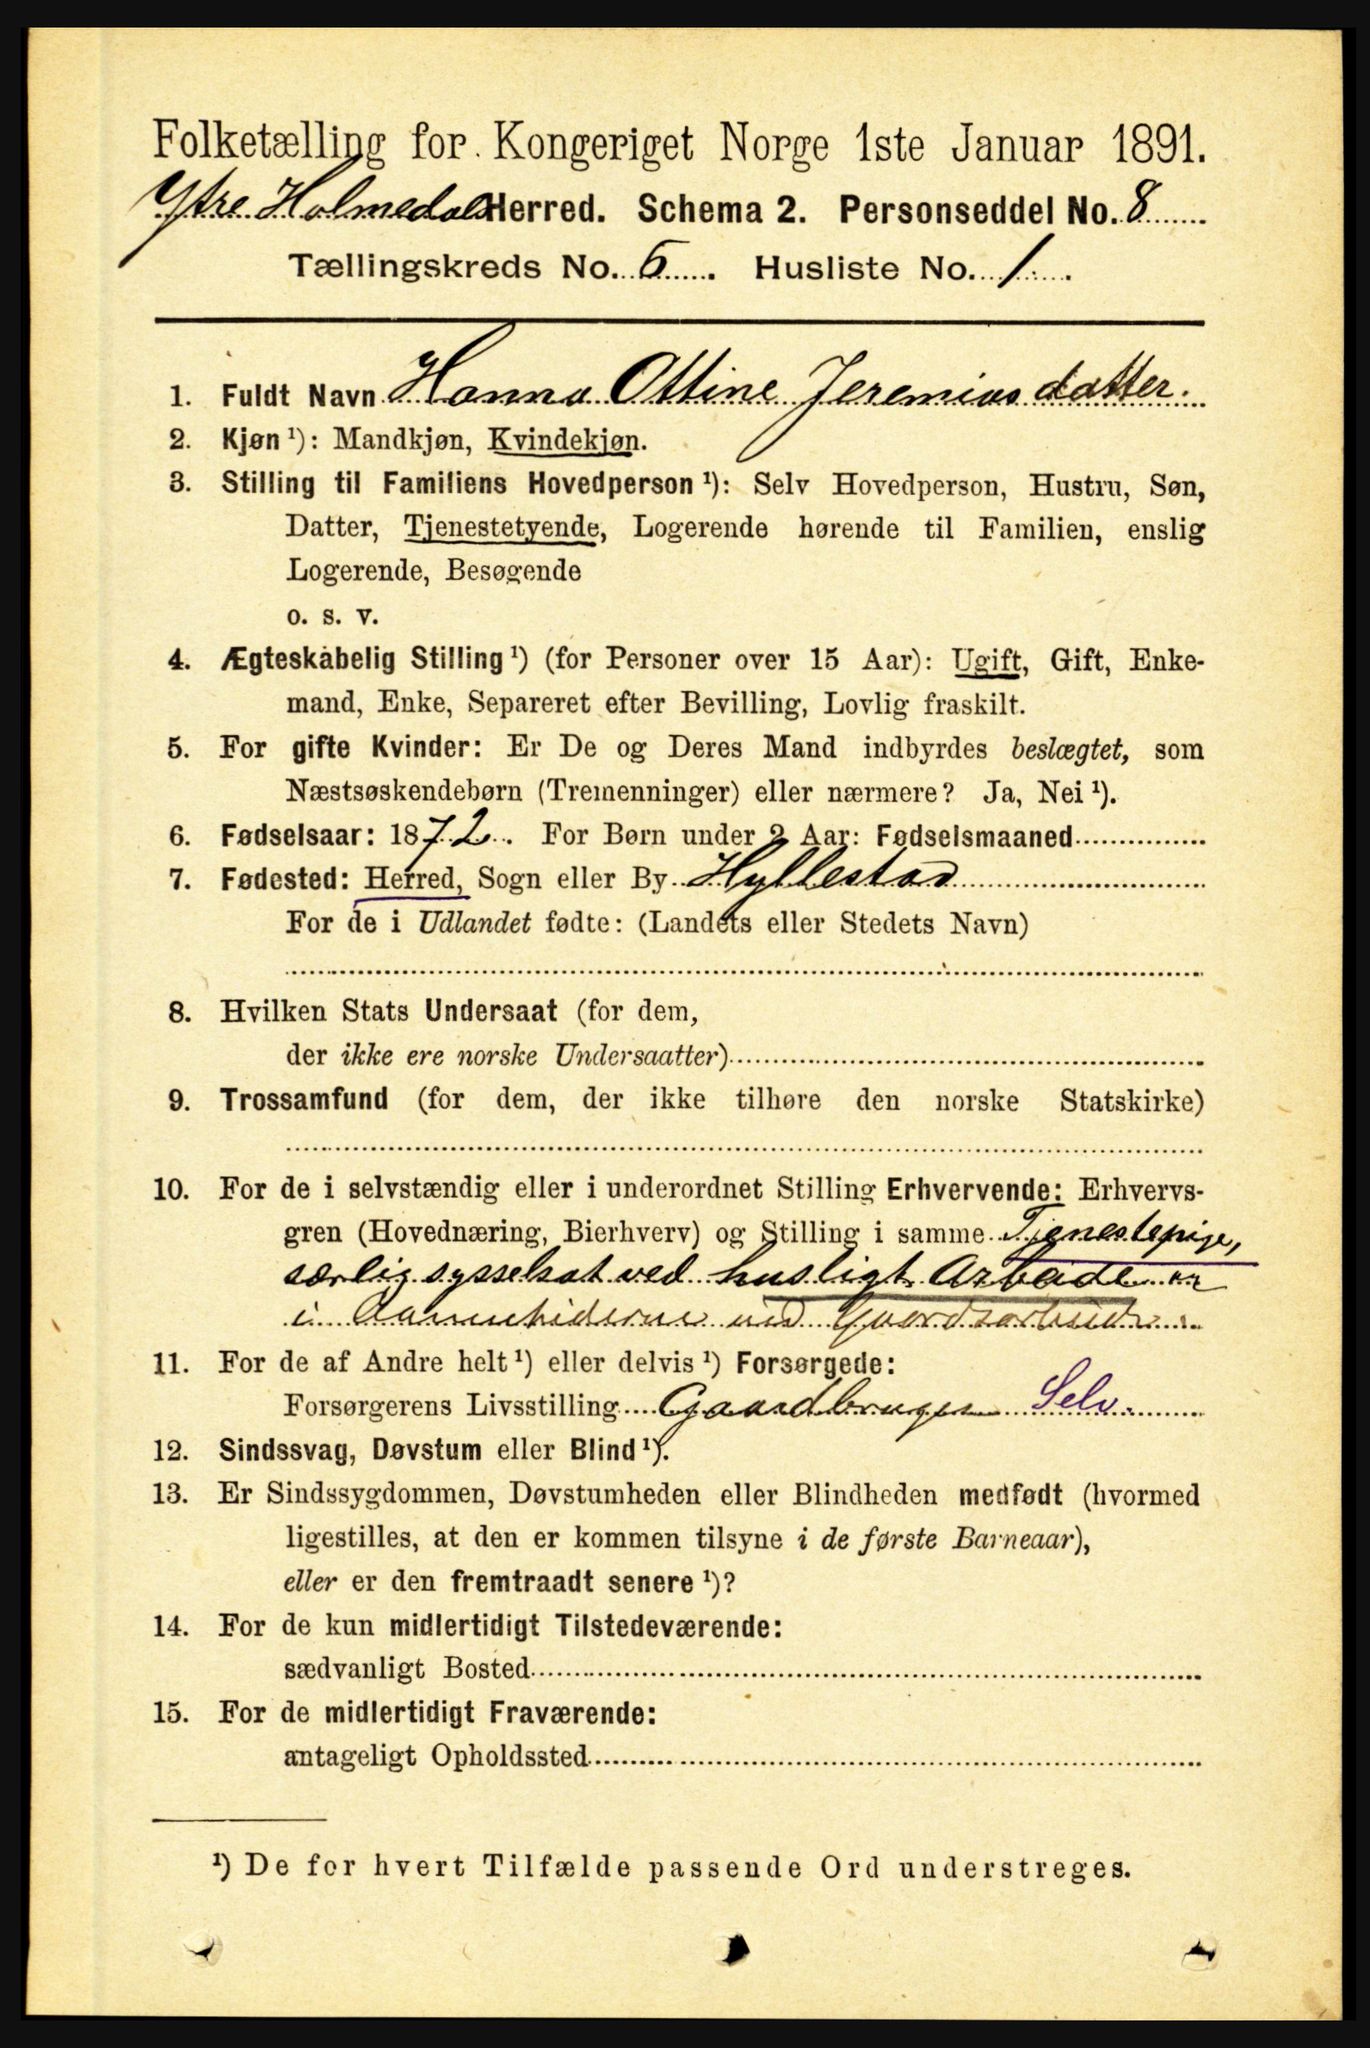 Folketælling for Kongeriget Norge 1ste Januar 1891.
Ytre Holmedals Herred. Schema 2. Personseddel No. 8
Tællingskreds No. 6. Husliste No. 1.
1. Fuldt Navn Hanna Ottine Jeremiasdatter.
2. Kjøn ¹): Mandkjøn, Kvindekjøn.
3. Stilling til Familiens Hovedperson ¹): Selv Hovedperson, Hustru, Søn,
Datter, Tjenestetyende, Logerende hørende til Familien, enslig
Logerende, Besøgende
o. s. v.
4. Ægteskabelig Stilling ¹) (for Personer over 15 Aar): Ugift, Gift, Enke-
mand, Enke, Separeret efter Bevilling, Lovlig fraskilt.
5. For gifte Kvinder: Er De og Deres Mand indbyrdes beslægtet, som
Næstsøskendebørn (Tremenninger) eller nærmere? Ja, Nei ¹).
6. Fødselsaar: 1872. For Børn under 2 Aar: Fødselsmaaned
7. Fødested: Herred, Sogn eller By Hyllestad
For de i Udlandet fødte: (Landets eller Stedets Navn)
8. Hvilken Stats Undersaat (for dem,
der ikke ere norske Undersaatter)
9. Trossamfund (for dem, der ikke tilhøre den norske Statskirke)
10. For de i selvstændig eller i underordnet Stilling Erhvervende: Erhvervs-
gren (Hovednæring, Bierhverv) og Stilling i samme Tjenestepige,
særlig sysselsat ved husligt Arbeide
i ved Gaardsarbeide
11. For de af Andre helt ¹) eller delvis ¹) Forsørgede:
Forsørgerens Livsstilling Gaardbruger Selv.
12. Sindssvag, Døvstum eller Blind ¹).
13. Er Sindssygdommen, Døvstumheden eller Blindheden medfødt (hvormed
ligestilles, at den er kommen tilsyne i de første Barneaar),
eller er den fremtraadt senere ¹)?
14. For de kun midlertidigt Tilstedeværende:
sædvanligt Bosted
15. For de midlertidigt Fraværende:
antageligt Opholdssted
¹) De for hvert Tilfælde passende Ord understreges.